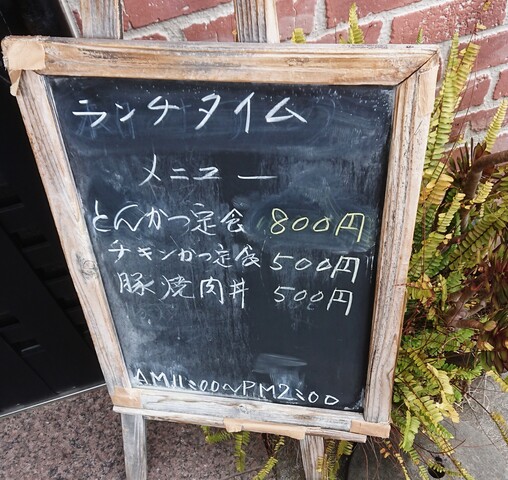 ランチタイム
メニュー
とんかつ定食 800円
チキンかつ定食 500円
豚焼肉丼 500円
AM11:00~PM2:00